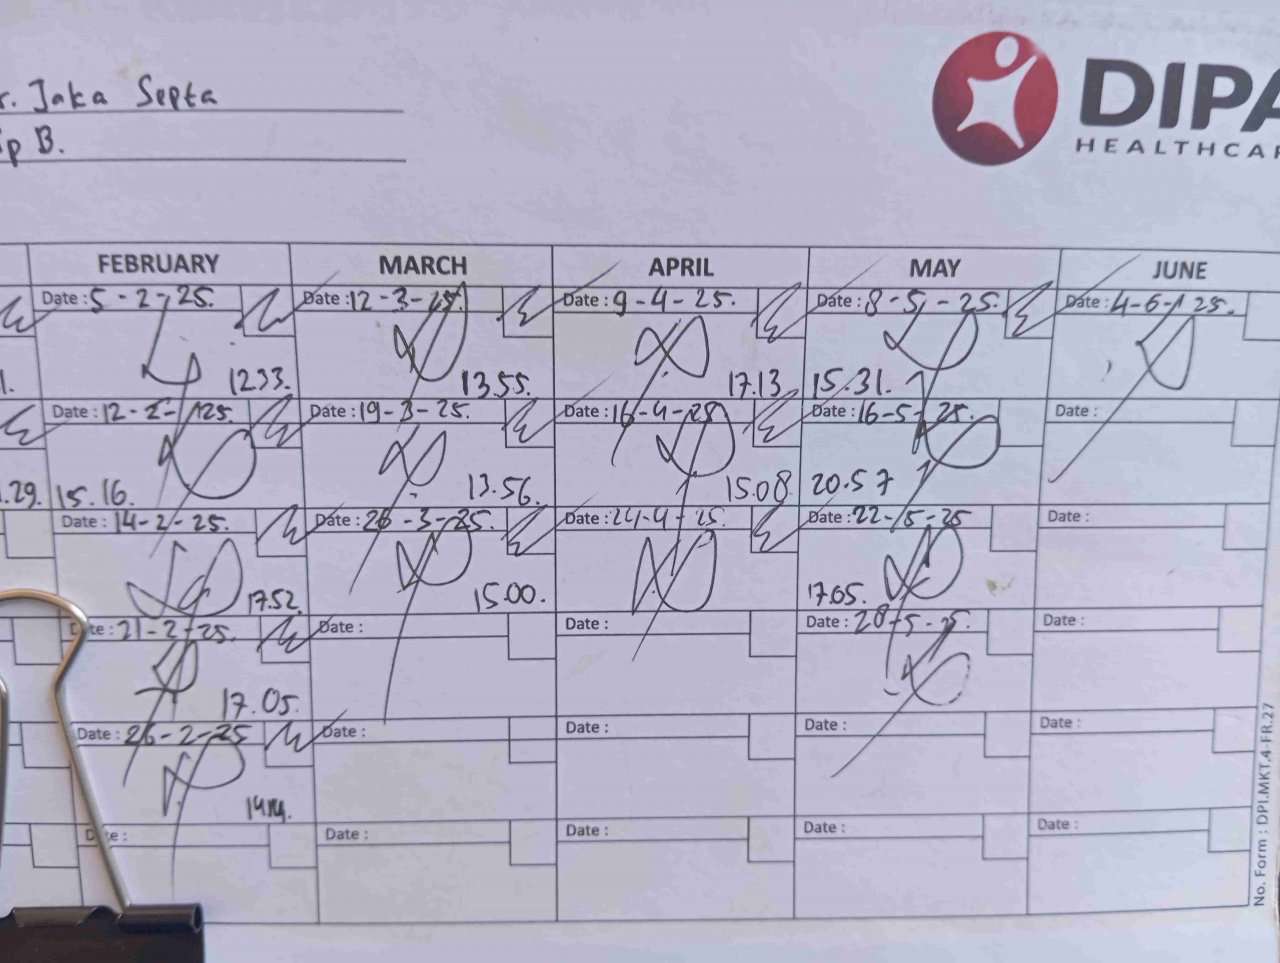 r. Jaka Septa
Sp B.
DIPA
HEALTHCAR
FEBRUARY MARCH APRIL MAY JUNE
Date : 5 - 2 - 25. Date : 12 - 3 - 25. Date : 9 - 4 - 25. Date : 8 - 5 - 25. Date : 4 - 6 - 25.
1. 1233. 13.55. 17.13 15.31.
Date : 12 - 2 - 25. Date : 19 - 3 - 25. Date : 16 - 4 - 25 Date : 16 - 5 - 25. Date :
.29. 15.16. 13.56. 15.08 20.57
Date : 14 - 2 - 25. Date : 26 - 3 - 25. Date : 24 - 4 - 25. Date : 22 - 5 - 25 Date :
17.52. 15.00. 17.05.
te : 21 - 2 - 25. Date : Date : Date : 28 - 5 - 25. Date :
17.05.
Date : 26 - 2 - 25 Date : Date : Date : Date :
D te : Date : Date : Date : Date :
No. Form : DPI.MKT.4-FR.27